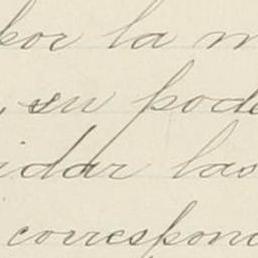 por la m
, su pode
idar las
corespon